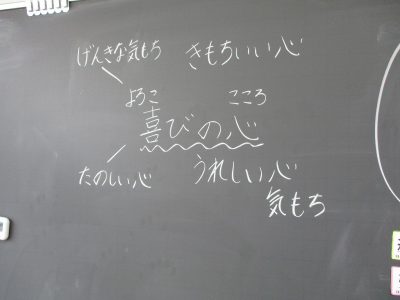 げんきな気もち きもちいい心
よろこ こころ
喜びの心
たのしい心 うれしい心
気もち